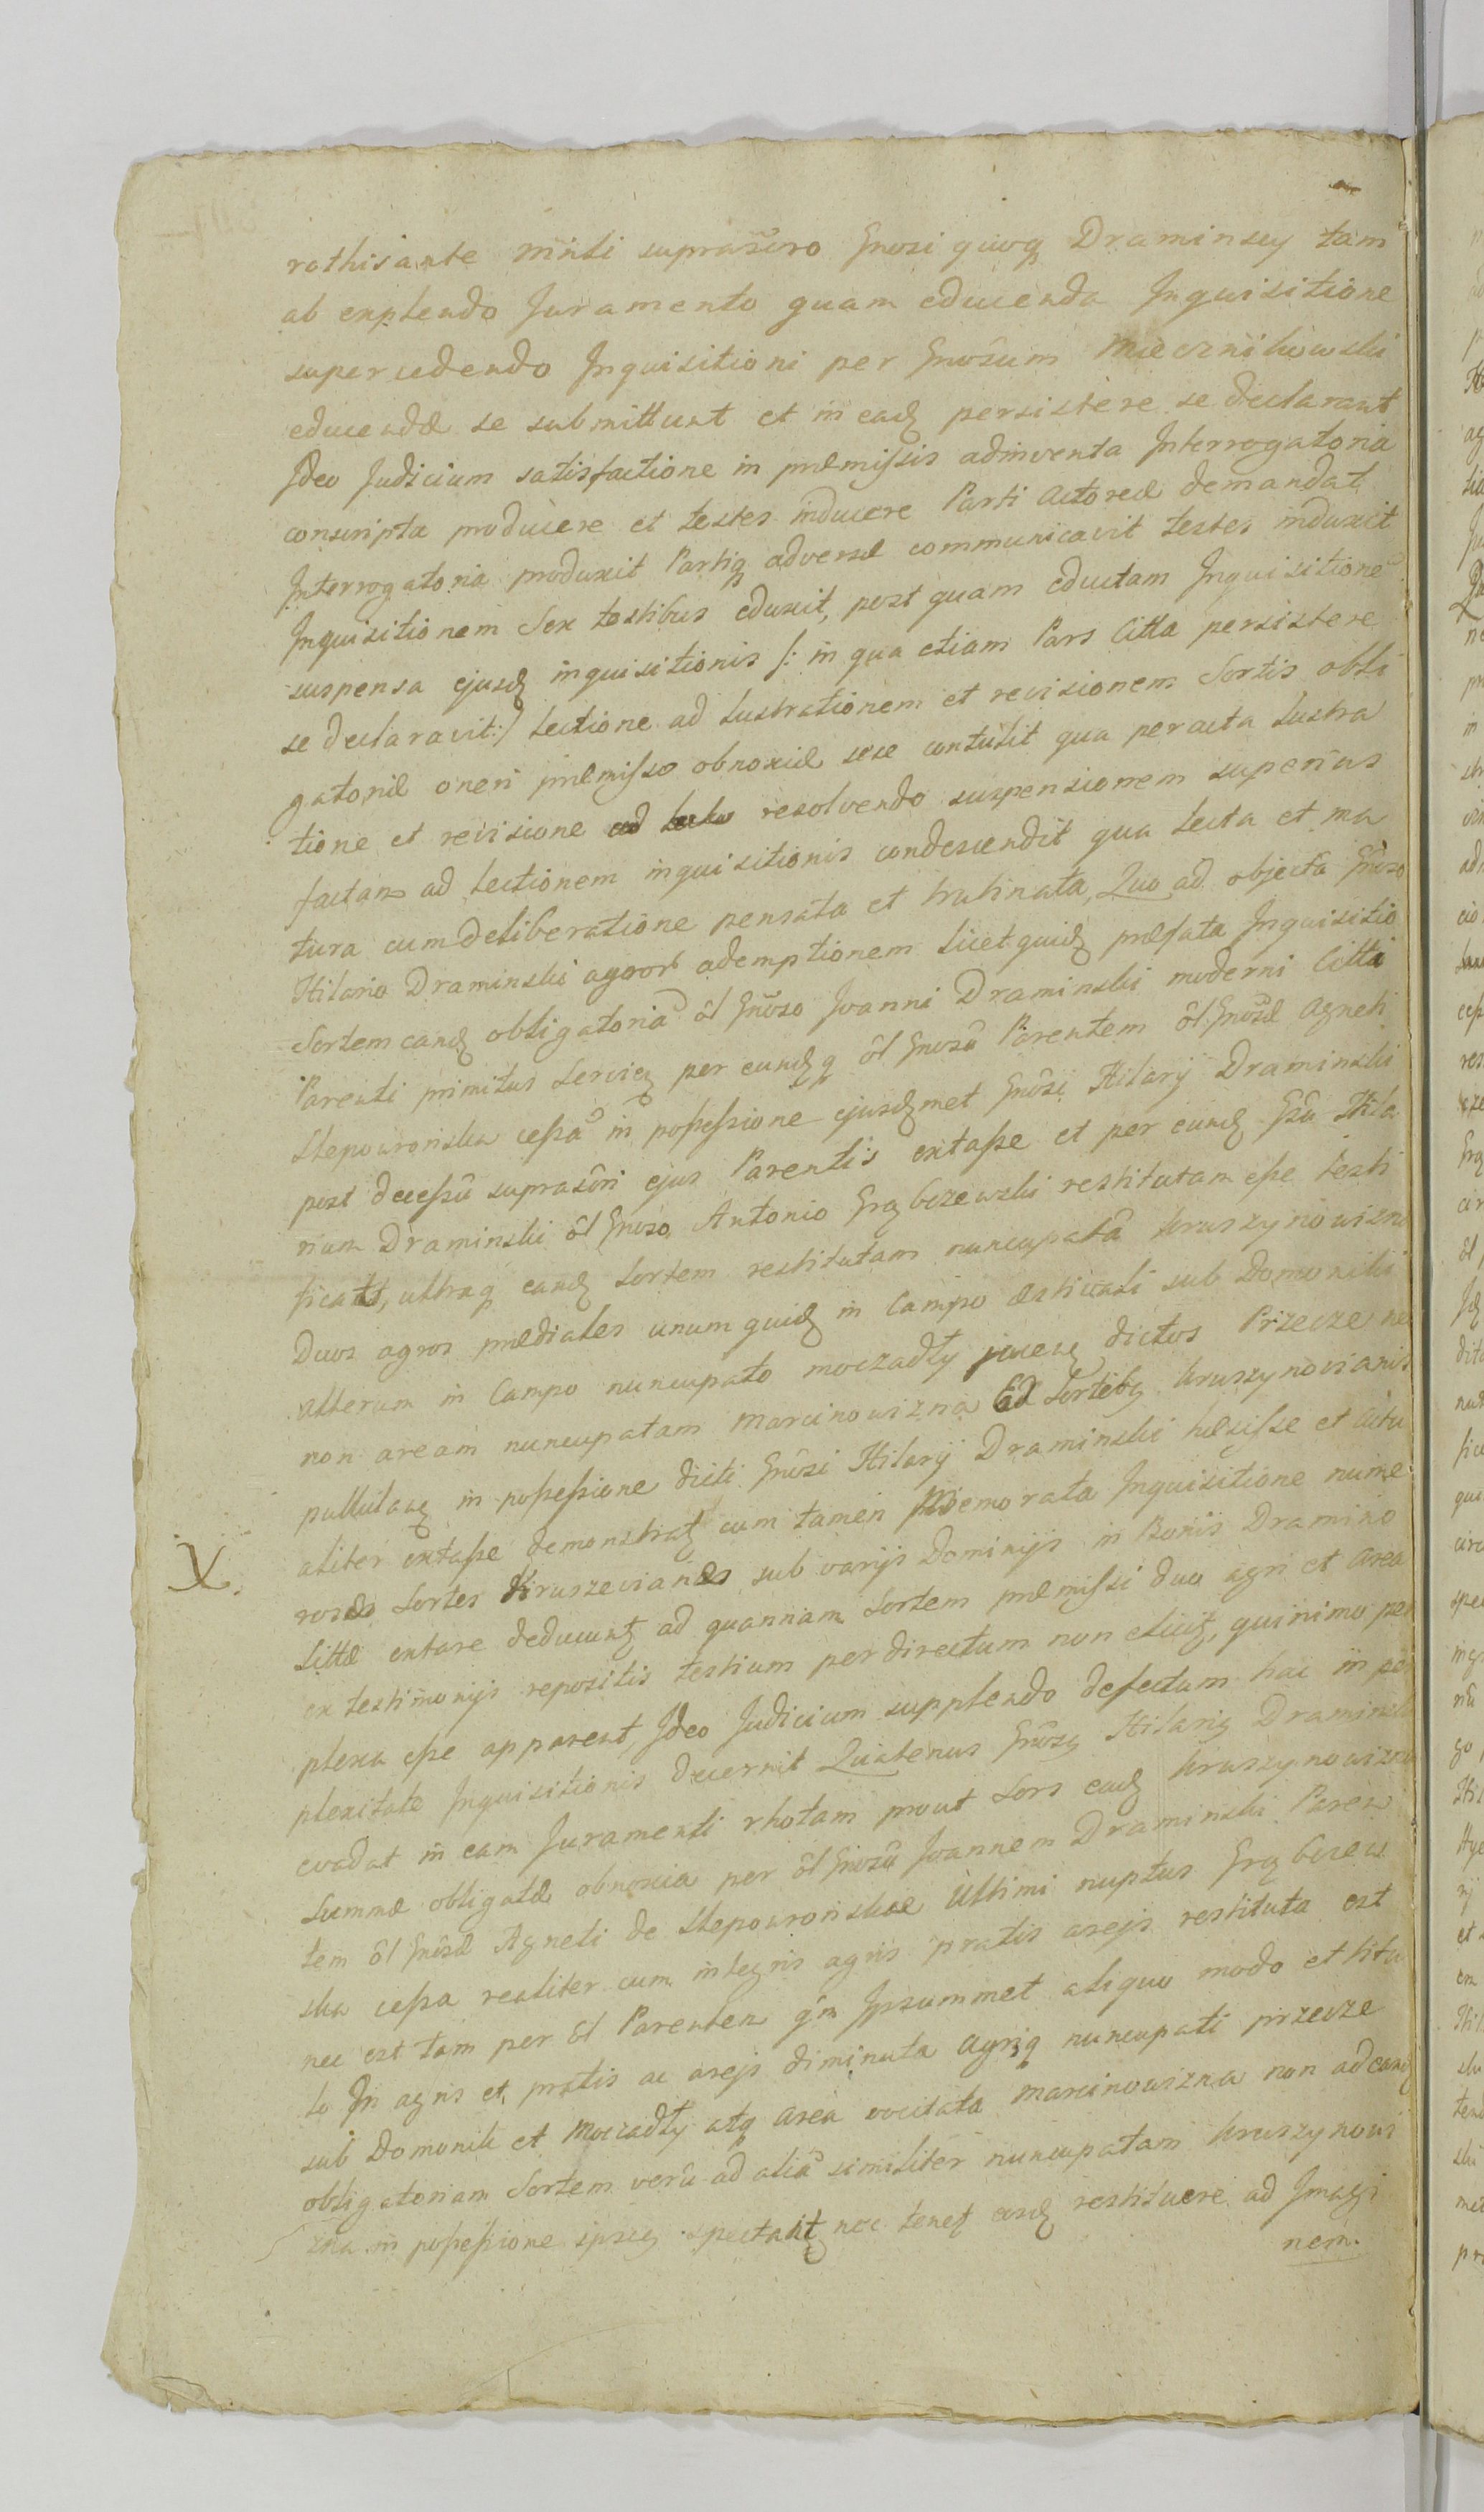 rathisante Mnli suprasčro Gnosi quoq Draminscy tam
ab explendo Juramento quam educenda Inquisitione
supersedendo Inquisitioni per Gnosum Miecznikowski
educendæ se submittunt et in eadᶎ persistere se declarant
Ideo Judicium satisfactione in præmiſsis adinventa Interrogatoria
conscripta producere et testes inducere Parti Actoreæ demandat
Interrogatoria produxit Partiq adversæ communicavit testes induxit
Inquisitionem Sex testibus eduxit, post quam eductam Inquisitionē
suspensa ejusdᶎ inquisitionis /: in qua etiam Pars Citta persistere
se declaravit:/ lectione ad lustrationem et revisionem Sortis obli
gatoriæ oneri præmiſso obnoxiæ sese contulit qua peracta lustra
tione et revisione resolvendo suspensionem superius
factam ad lectionem inquisitionis condescendit qua lecta et ma
tura cum deliberatione pensata et trutinata, Quo ad objecta Gnoso
Hilario Draminski agror ademptionem licet quidᶎ præfata Inquisitio
Sortem eandᶎ obligatoriā ol Gnoso Joanni Draminski moderni Citti
Parenti primitus servien per eundᶎq ol Gnosū Parentem ol Gnosæ Agneti
Steponronska ceſsā in poſseſsione ejusdᶎmet Gnosi Hilarij Draminski
post deceſsū suprascri ejus Parentis extaſse et per eundᶎ Gsū Hila
rium Draminski ol Gnoso Antonio Grzbczewski restitutam eſse testi
ficatt, ultraq eandᶎ Sortem restitutam nuncupatā kruszynowizna
Duos agros prædiales unum quidᶎ in Campo æstivali sub Domoniki
alterum in Campo nuncupato moczadły jacen dictos Przecze nec
non aream nuncupatam Marcinowizna Ex Sortibq kruszynovianis
pullulanᶎ in poſseſsione dicti Gnosi Hilarij Draminski hæsiſse et actu
aliter extaſse demonstratᶎ cum tamen memorata Inquisitione nume
X.
rosas Sortes Kruszevianas sub varijs Dominijs in Bonis Dramino
Littæ extare deducuntᶎ ad quannam Sortem præmiſsi duo agri et area
ex testimonijs repositis testium per directum non elicitᶎ, quinimo per
plexa eſse apparent, Ideo Judicium supplendo defectum hac in per
plexitate Inquisitionis decernit Quatenus Gnosq Hilariq Draminski
evadat in eam Juramenti rhotam prout Sors eadᶎ kruszynowizna
Summæ obligatæ obnoxia per ol Gnosū Joannem Draminski Paren
tem ol Gnosæ Agneti de Steponronskie Ultimi nuptus Grzbczew
ska ceſsa realiter cum integris agris pratis areis restituta est
nec est tam per ol Parentem qm Ipsummet aliquo modo et titu
lo In agris et pratis ac areis diminuta Agriq nuncupati przecze
sub Domoniki et Moczadły atq area vocitata Marcinowizna non ad eandᶎ
obligatoriam Sortem verū ad aliā similiter nuncupatam kruszynowi
zna in poſseſsione ipsiq spectantᶎ nec tenetᶎ easdᶎ restituere ad Imagi
nem.